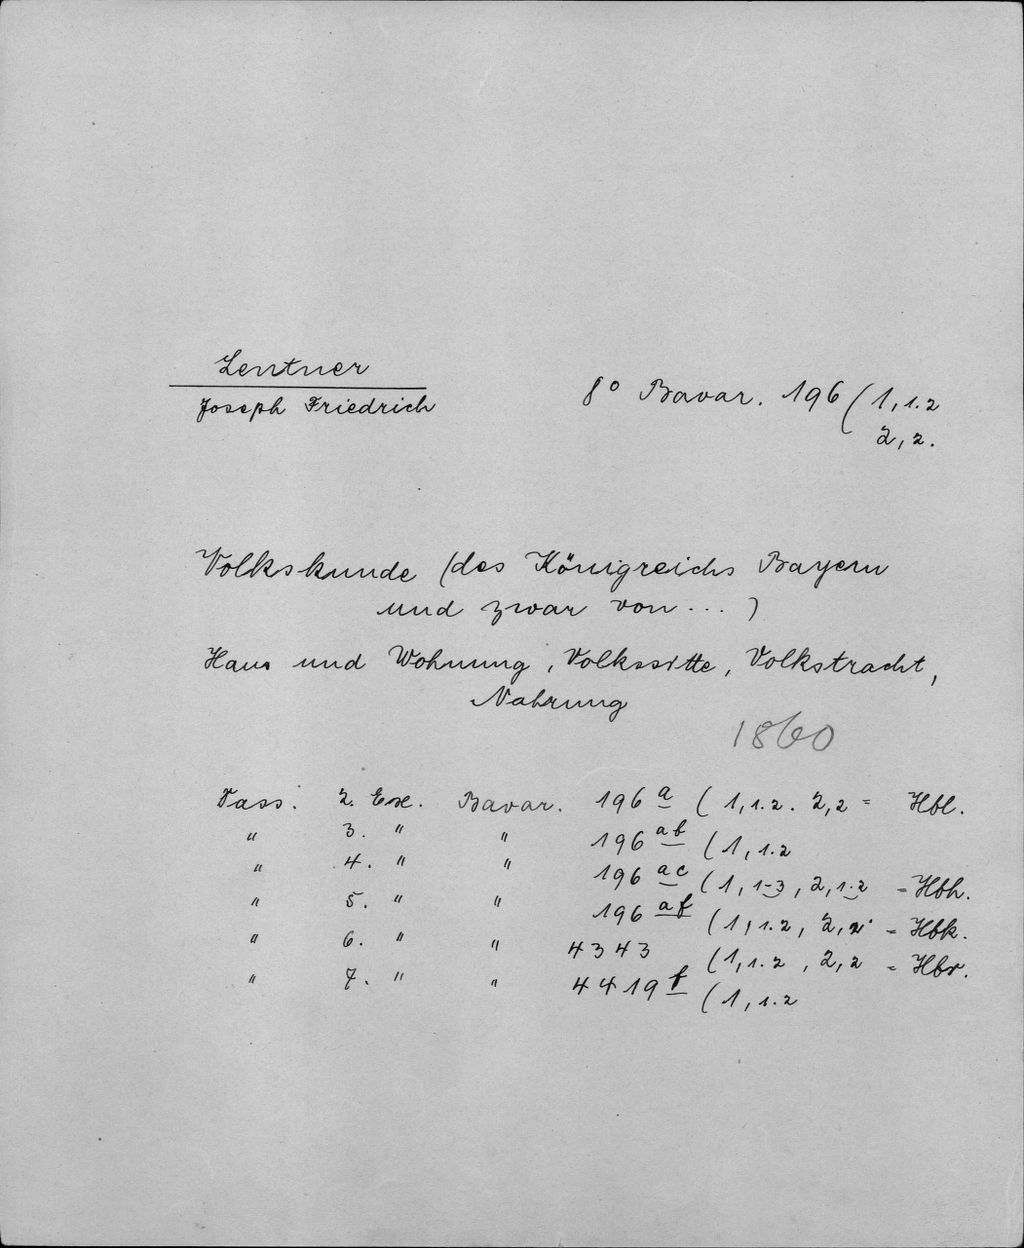 Lentner
Joseph Friedrich
8° Bavar. 196 (1, 1.2
2, 2.
Volkskunde (des Königreichs Bayern
und zwar von ... )
Haus und Wohnung, Volkssitte, Volkstracht,
Nahrung
1860
Dass. 2. Ex. Bavar. 196 a (1, 1.2. 2, 2 = Hbl.
" 3. " " 196 ab (1, 1.2
" 4. " " 196 ac (1, 1-3, 2, 1.2 = Hbh.
" 5. " " 196 af (1, 1.2, 2, 2 = Hbk.
" 6. " " 4343 (1, 1.2, 2, 2 = Hbr.
" 7. " " 4419 f (1, 1.2